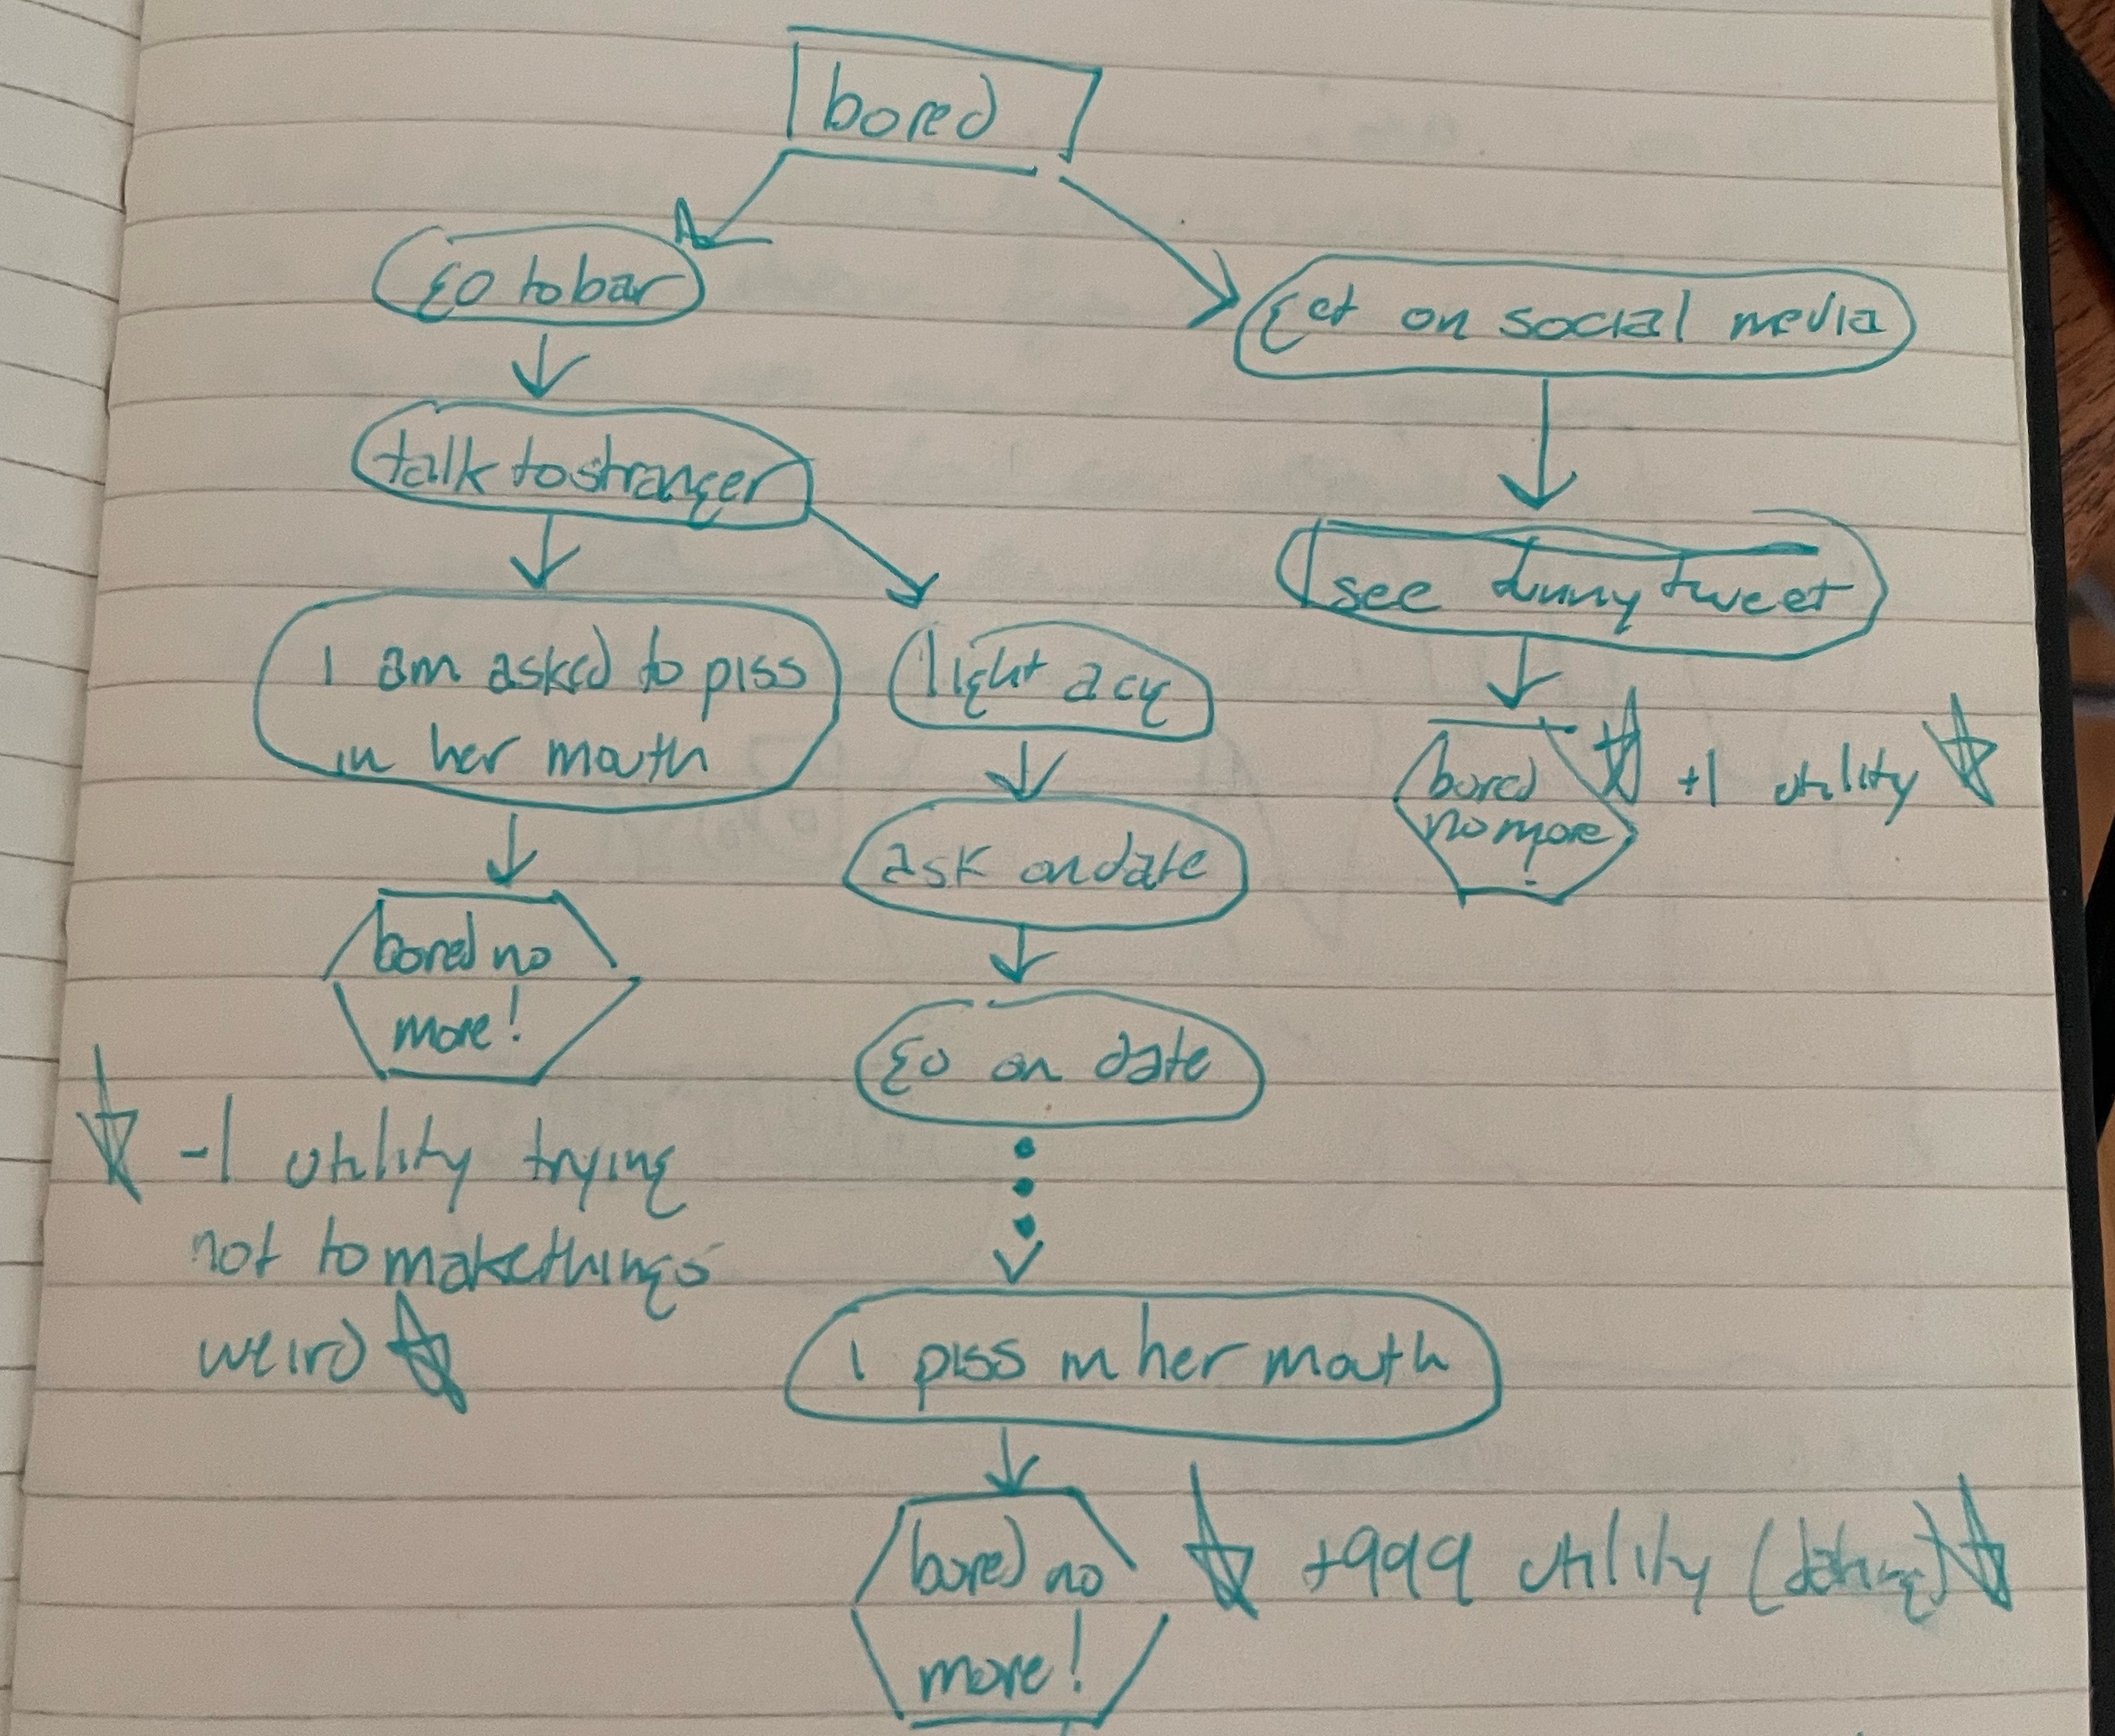 bored
go to bar
get on social media
talk to stranger
see funny tweet
I am asked to piss
in her mouth
light a cig
bored
no more!
+1 utility
ask on date
bored no
more!
go on date
-1 utility trying
not to make things
weird
I piss in her mouth
bored no
more!
+999 utility (dating)